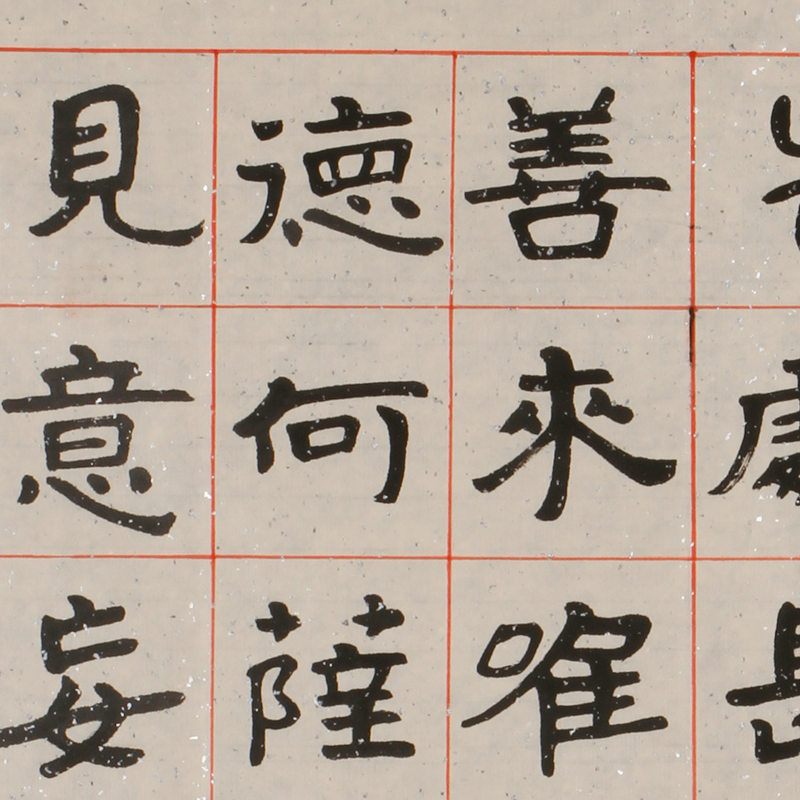 善來唯
德何薩
見意妄